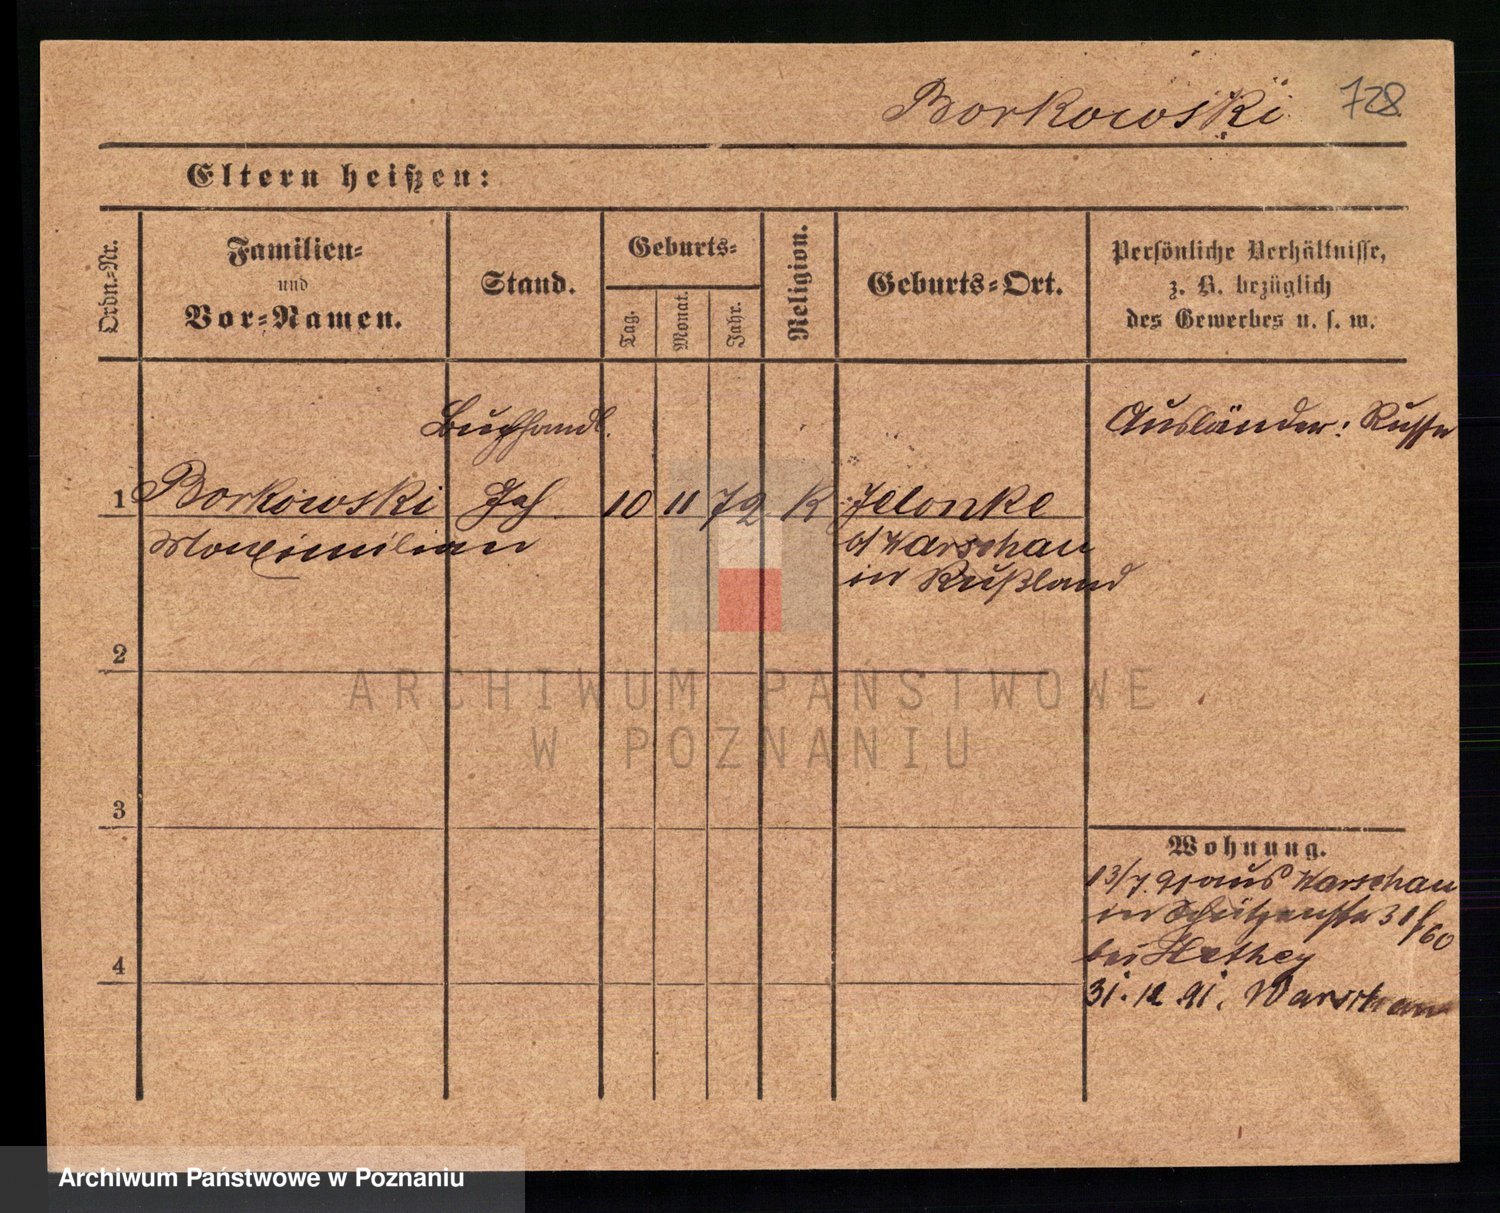 Borkowski 728
Eltern heißen:
Ordn.-Nr.
Familien-
und
Vor-Namen.
Stand.
Geburts-
Tag.
Monat.
Jahr.
Religion.
Geburts-Ort.
Persönliche Verhältnisse,
z. B. bezüglich
des Gewerbes u. s. w.
Buchhandl.
Ausländer: Russe
1 Borkowski 10 11 72 K Jelonke
Maximilian
Warschau
in Rußland
2
ARCHIWUM PAŃSTWOWE
W POZNANIU
3
Wohnung.
13/7. 91 aus Warschau
in Schützenstr 31/60
bei Hethey
4
31. 12 91. Warschau
Archiwum Państwowe w Poznaniu